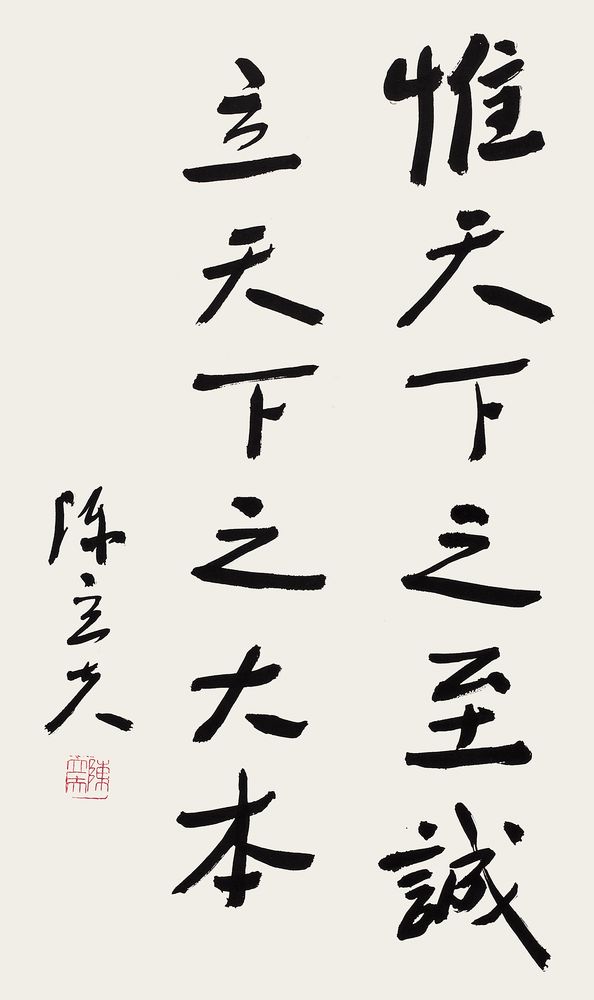 惟天下之至誠
立天下之大本
陳立夫